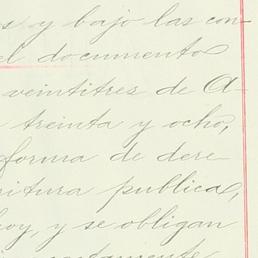 s y bajo las con-
el documento
veintitres de A-
treinta y ocho,
forma de dere
ritura publica,
oy, y se obligan